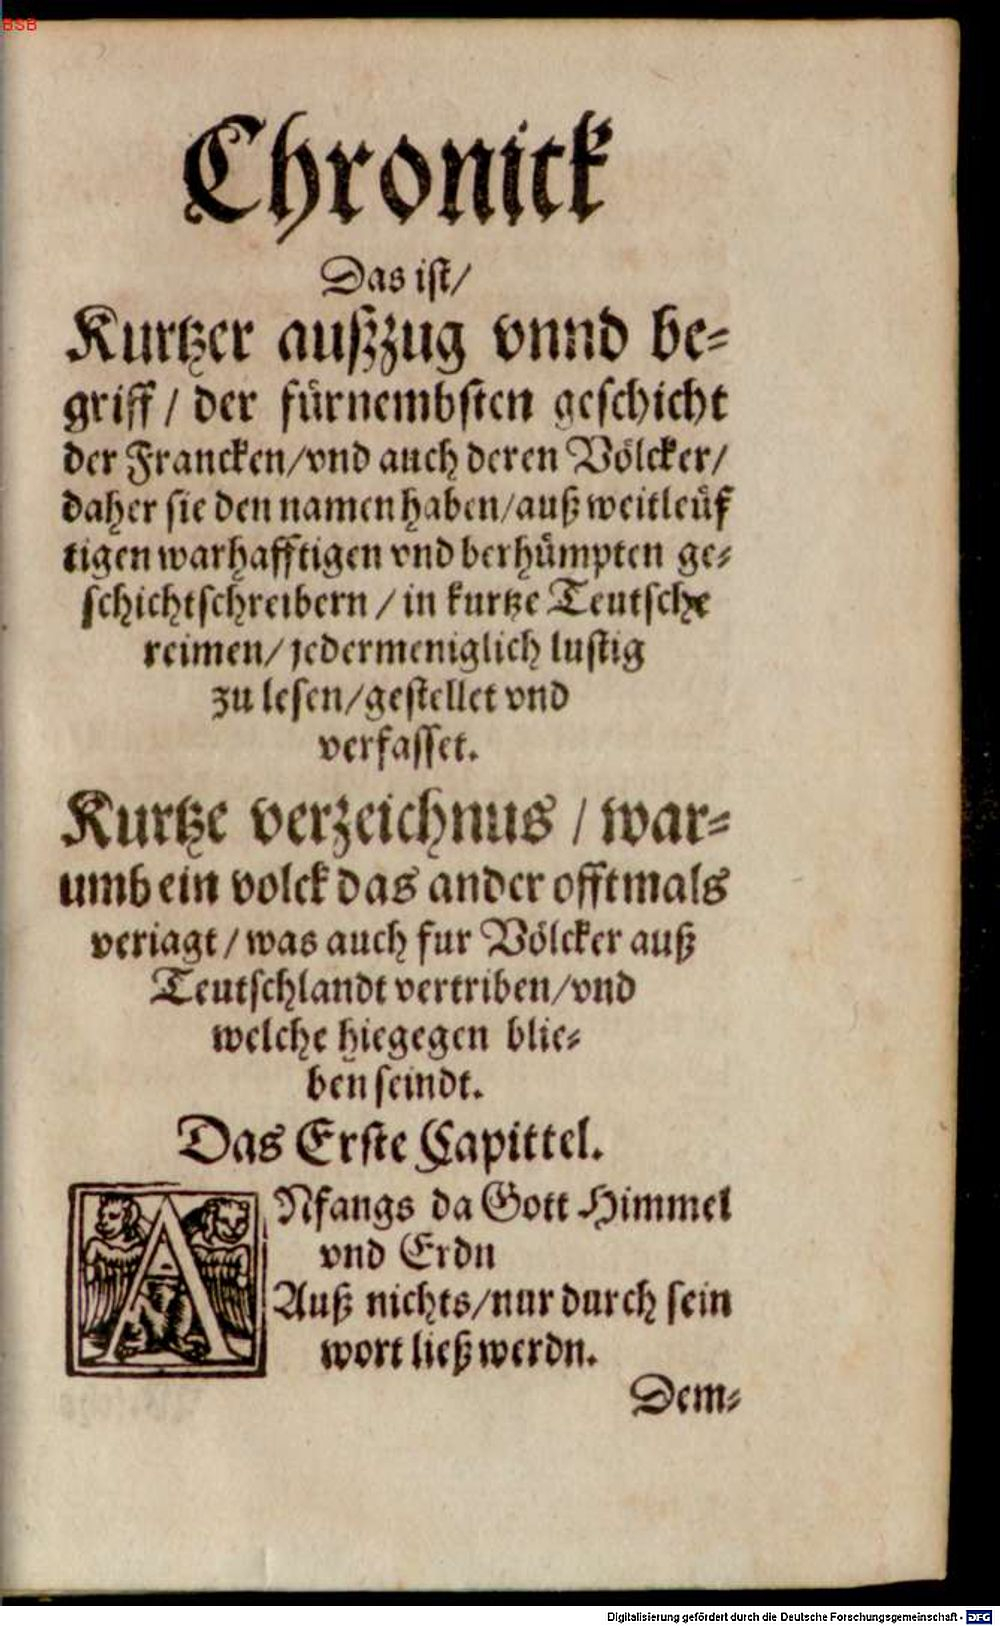 BSB
Chronick
Das ist/
Kurtzer außzug vnnd be-
griff / der fürnembsten geschicht
der Francken/vnd auch deren Völcker/
daher sie den namen haben/auß weitleüf
tigen warhafftigen vnd berhümpten ge-
schichtschreibern / in kurtze Teutsche
reimen/ jedermeniglich lustig
zu lesen/gestellet vnd
verfasset.
Kurtze verzeichnus / war-
umb ein volck das ander offtmals
veriagt / was auch fur Völcker auß
Teutschlandt vertriben/vnd
welche hiegegen blie-
ben seindt.
Das Erste Capittel.
ANfangs da Gott Himmel
vnd Erdn
Auß nichts/nur durch sein
wort ließ werdn.
Dem-
Digitalisierung gefördert durch die Deutsche Forschungsgemeinschaft - DFG